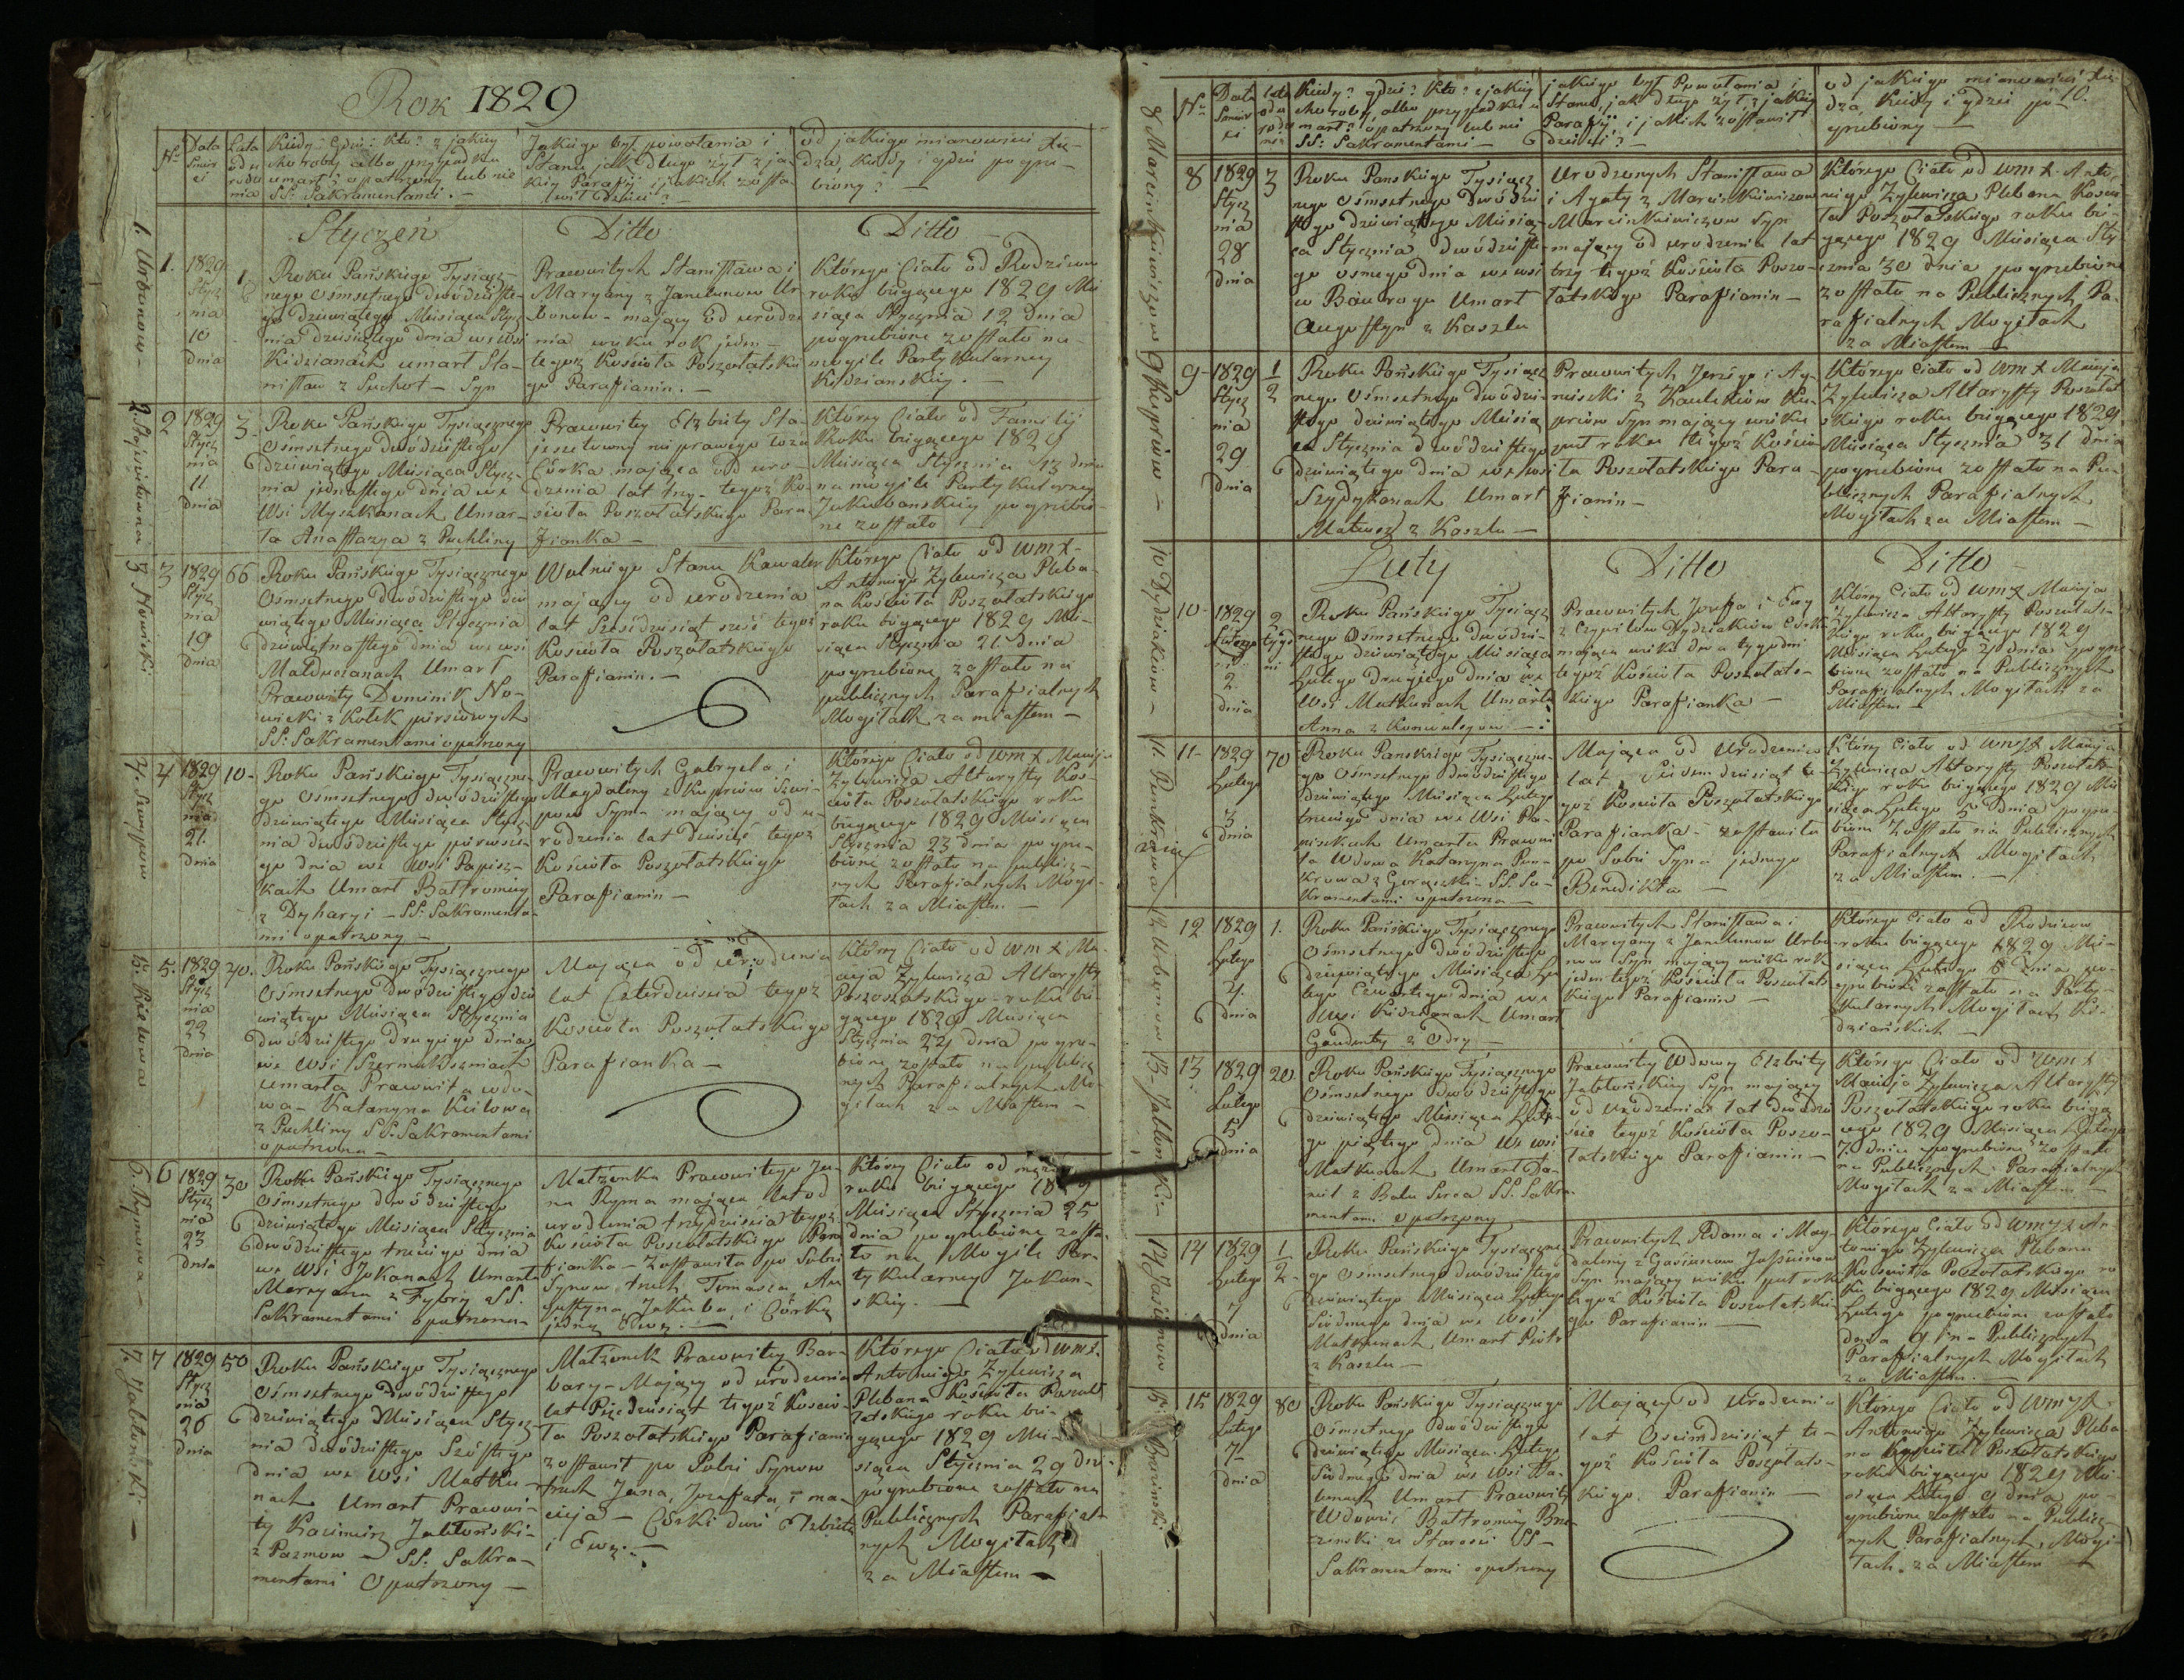 Rok 1829
Nr
Data Smierci
Lata od urodzenia
Kiedy? Gdzie? Kto? z jakiey
choroby albo przypadku
umarł? opatrzony lub nie
SS: Sakramentami. —
Jakiego był powołania i
Stanu jak długo żył z ja-
kiey Parafij i jakich zosta-
wił Dzieci? —
od jakiego mianowicie Xię-
dza, kiedy i gdzie pogrze-
biony? —
Styczeń
Ditto
Ditto
1. Urbanow —
1.
1829
Stycz
nia
10
dnia
1
Roku Pańskiego Tysiącz-
nego Ośmsetnego dwódzieste-
go dziewiątego Miesiąca Stycz-
nia dziesiątego dnia we wsi
Kidzianach umarł Sta-
nisław z Suchot — Syn
Prawowitych Stanisława i
Maryany z Janelunow Ur
banow — maiący od urodze
nia wieku rok jeden —
tegoż Kościoła Poszołatskie
go Parafianin. —
Którego Ciało od Rodziców
roku bieżącego 1829 Mie
siąca Stycznia 12 dnia
pogrzebione zostało na
mogile Partykularney
Kidzianskiey. —
2
1829
Stycz
nia
11
dnia
3
Roku Pańskiego Tysiącznego
Ośmsetnego Dwódziestego
dziewiątego Miesiąca Stycz-
nia jednastego dnia we
Wsi Myszkanach Umar-
ła Anastazya z Puchliny
Prawowitey Elzbiety Sta-
nieprawego łoża
Córka maiąca od uro-
dzenia lat trzy — tegoż Ko-
ścioła Poszołatskiego Para
fianka —
Którey Ciało od Familij
Roku bieżącego 1829
Miesiąca Stycznia 13 dnia
na mogile Partykularney
Jakubanskiey pogrzebio-
ne zostało
3 Nowicki
3
1829
Stycz
nia
19
dnia
66
Roku Pańskiego Tysiącznego
Ośmsetnego Dwódziestego dzie
wiątego Miesiąca Stycznia
dziewiętnastego dnia we wsi
Matducianach Umarł
Prawowity Dominik No-
wicki z Kolek piersiowych
SS: Sakramentami opatrzony
Wolnego Stanu Kawaler
maiący od urodzenia
lat Szescdziesiąt sześć tegoż
Kościoła Poszołatskiego
Parafianin. —
Którego Ciało od WM X.
Antoniego Żylewicza Pleba-
na Kościoła Poszołatskiego
roku bieżącego 1829 Mie-
siąca Stycznia 21. dnia
pogrzebione zostało na
publicznych Parafialnych
Mogiłach za miastem —
4
1829
Stycz
nia
21.
dnia
10 —
Roku Pańskiego Tysiączne-
go Ośmsetnego dwódziestego
dziewiątego Miesiąca Stycz-
nia dwódziestego pierwsze-
go dnia we Wsi Papisz-
kach Umarł Bartłomiey
z Dyharyi — SS: Sakramenta-
mi opatrzony —
Prawowitych Gabryela i
Magdaleny z Kuprów Szwi-
pow Syn — maiący od u-
rodzenia lat Dziesięć tegoż
Kościoła Poszołatskiego
Parafianin —
Którego Ciało od WM X Macieja
Żylewicza Altarysty Koś-
cioła Poszołatskiego roku
bieżącego 1829 Miesiąca
Stycznia 23 dnia pogrze-
bione zostało na publicz-
nych Parafialnych Mogi-
łach za Miastem. —
5.
1829
Stycz
nia
22
dnia
40.
Roku Pańskiego Tysiącznego
Ośmsetnego Dwódziestego dzie
wiątego Miesiąca Stycznia
dwódziestego drugiego dnia
we Wsi
umarła Prawowita wdo-
wa — Katarzyna Kielowa
z Puchliny SS. Sakramentami
opatrzona —
Maiąca od urodzenia
lat Czterdzieścia tegoż
Kościoła Poszołatskiego
Parafianka —
Którey Ciało od WM X Ma-
cieja Żylewicza Altarysty
Poszołatskiego roku bie-
żącego 1829 Miesiąca
Stycznia 24 dnia pogrze-
bione zostało na publicz
nych Parafialnych Mo-
giłach za Miastem —
6. Rymowa —
6
1829
Stycz
nia
23
dnia
30
Roku Pańskiego Tysiącznego
Ośmsetnego dwódziestego
dziewiątego Miesiąca Stycznia
dwódziestego trzeciego dnia
we Wsi Jokanach Umarła
Maryana z Febry SS.
Sakramentami opatrzona —
Małżonka Prawowitego Ja-
na Ryma maiąca lat od
urodzenia trzydzieścia tegoż
Kościoła Poszołatskiego Para
fianka — Zostawiła po Sobie
Synow trzech, Tomasza, Au
gustyna, Jakuba, i Córkę
jedną Ewę. —
Którey Ciało od męża
roku bieżącego 1829
Miesiąca Stycznia 25
dnia pogrzebione zosta-
ło na Mogile Par-
tykularney Jokan-
skiey. —
7. Jabłoński —
7
1829
Stycz
nia
26
dnia
50
Roku Pańskiego Tysiącznego
Ośmsetnego Dwódziestego
dziewiątego Miesiąca Stycz-
nia dwódziestego Szóstego
dnia we Wsi Matku-
nach Umarł Prawowi-
ty Kazimierz Jabłoński
z Pazmow — SS: Sakra-
mentami Opatrzony —
Małżonek Prawowitey Bar-
bary — Maiący od urodzenia
lat Pięćdziesiąt tegoż Kościo-
ła Poszołatskiego Parafianin
zostawił po Sobie Synow
trzech Jana, Jozafata, i Ma-
cieja — Córki dwie Elzbietę
i Ewę. —
Którego Ciało od WM X.
Antoniego Żylewicza
Plebana Kościoła Poszoł
łatskiego roku bie-
żącego 1829 Mie-
siąca Stycznia 29 dnia
pogrzebione zostało na
Publicznych Parafial-
nych Mogiłach
za Miastem —
Nr
Data Smierci
Lata od urodzenia
Kiedy? gdzie? Kto? z jakiey
choroby, albo przypadku u
marł? opatrzony lub nie
SS: Sakramentami —
jakiego był Powołania i
Stanu, jak długo żył, z jakiey
Parafij, i jakich zostawił
dzieci? —
od jakiego mianowicie Xię-
dza, kiedy i gdzie po-
grzebiony —
10.
8 Marcinkiewiczow
8
1829
Stycz
nia
28
dnia
3
Roku Pańskiego Tysiącz
nego Ośmsetnego Dwódzie
stego dziewiątego Miesią-
ca Stycznia dwódzieste-
go osmego dnia we wsi
Umarł
Augustyn z Kaszlu
Urodzonych Stanisława
i Agaty z Marcinkiewiczow
Marcinkiewiczow Syn
maiący od urodzenia lat
trzy tegoż Kościoła Poszo-
łatskiego Parafianin —
Którego Ciało od WM X. Anto-
niego Żylewicza Plebana Kościo
ła Poszołatskiego roku bie-
żącego 1829 Miesiąca Sty-
cznia 30 dnia pogrzebione
zostało na Publicznych Pa-
rafialnych Mogiłach
za Miastem —
9 Kuprów —
9
1829
Stycz
nia
29
dnia
1/2
Roku Pańskiego Tysiącz
nego Ośmsetnego dwódzie-
stego dziewiątego Miesią
ca Stycznia dwódziestego
dziewiątego dnia we wsi
Szypdykosiach Umarł
Mateusz z Kaszlu —
Prawowitych Jerzego i Ag-
nieszki z Ku-
prów Syn maiący wieku
puł roku tegoż Kościo
ła Poszołatskiego Para-
fianin —
Którego Ciało od WM X Macieja
Żylewicza Altarysty Poszołat
skiego roku bieżącego 1829
Miesiąca Stycznia 31 dnia
pogrzebione zostało na Pu-
blicznych Parafialnych
Mogiłach za Miastem —
Luty
Ditto
Ditto
10 Dydziakow —
10
1829
Lutego
2.
dnia
2
tygod
ni
Roku Pańskiego Tysiącz
nego Ośmsetnego dwódzie-
stego dziewiątego Miesiąca
Lutego drugiego dnia we
Wsi Matkunach Umarła
Anna z Konwulsyow —
Prawowitych Jozefa i Ewy
z Czepułow Dydziakow Córka
maiąca wieku dwa tygodni
tegoż Kościoła Poszołats-
kiego Parafianka —
Którey Ciało od WM X Macieja
Żylewicza Altarysty Poszołats-
kiego roku bieżącego 1829
Miesiąca Lutego 4 dnia pogrze
bione zostało na Publicznych
Parafialnych Mogiłach za
Miastem —
11
1829
Lutego
3
dnia
70
Roku Pańskiego Tysiączne-
go Ośmsetnego dwódziestego
dziewiątego Miesiąca Lutego
trzeciego dnia we Wsi Pa-
niszkach Umarła Prawowi
ta Wdowa Katarzyna Pien-
krowa z Gorączki — SS. Sa-
kramentami opatrzona —
Maiąca od Urodzenia
lat Siedemdziesiąt te-
goż Kościoła Poszołatskiego
Parafianka — zostawiła
po Sobie Syna jednego
Benedikta —
Którey Ciało od WM X Macieja
Żylewicza Altarysty Poszołats-
kiego roku bieżącego 1829 Mie
siąca Lutego 5 dnia pogrze-
bione zostało na Publicznych
Parafialnych Mogiłach
za Miastem. —
12 Urbanow
12
1829
Lutego
4.
dnia
1.
Roku Pańskiego Tysiącznego
Ośmsetnego Dwódziestego
dziewiątego Miesiąca Lu
tego Czwartego dnia we
Wsi Kidzianach Umarł
Gaudenty z Odry —
Prawowitych Stanisława i
Maryany z Janelunow Urba
now Syn maiący wieku rok
jeden tegoż Kościoła Poszołats
kiego Parafianin —
Którego Ciało od Rodziców
roku bieżącego 1829 Mie-
siąca Lutego 6 dnia po-
grzebione zostało na Party-
kularnych Mogiłach Ki-
dziańskich —
13 Jabłoński —
13
1829
Lutego
5
dnia
20
Roku Pańskiego Tysiącznego
Ośmsetnego dwódziestego
dziewiątego Miesiąca Lute-
go piątego dnia We wsi
Matkunach Umarł Da-
niel z Bolu Serca SS. Sakra-
mentami opatrzony
Prawowitey Wdowy Elzbiety
Jabłońskiey Syn maiący
od Urodzenia lat dwódzie
ście tegoż Kościoła Poszo-
łatskiego Parafianin —
Którego Ciało od WM X
Macieja Żylewicza Altarysty
Poszołatskiego roku bieżą
cego 1829 Miesiąca Lutego
7. dnia pogrzebione zostało
na Publicznych Parafialnych
Mogiłach za Miastem —
14
1829
Lutego
7
dnia
1/2
Roku Pańskiego Tysiączne
go Ośmsetnego dwódziestego
dziewiątego Miesiąca Lutego
Siódmego dnia we Wsi
Matkunach Umarł Piotr
z Kaszlu —
Prawowitych Adama i Mag
daleny z
Syn maiący wieku puł roku
tegoż Kościoła Poszołatskie
go Parafianin —
Którego Ciało od WM X An-
toniego Żylewicza Plebana
Kościoła Poszołatskiego ro
ku bieżącego 1829 Miesiąca
Lutego pogrzebione zostało
dnia 9. na Publicznych
Parafialnych Mogiłach
za Miastem. —
15
1829
Lutego
7
dnia
80
Roku Pańskiego Tysiącznego
Ośmsetnego Dwódziestego
dziewiątego Miesiąca Lutego
Siódmego dnia we Wsi
Umarł Prawowity
Wdowiec Bartłomiey
ze Starości SS —
Sakramentami opatrzony
Maiący od Urodzenia
lat Osimdziesiąt te-
goż Kościoła Poszołats-
kiego Parafianin —
Którego Ciało od WM X
Antoniego Żylewicza Pleba
na Kościoła Poszołatskiego
roku bieżącego 1829 Mie-
siąca Lutego 9 dnia po-
grzebione zostało na Publicz-
nych Parafialnych Mogi-
łach za Miastem —